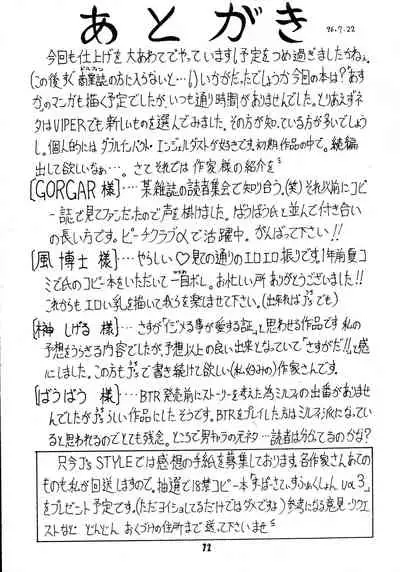 あとがき
96.7.22
今回も仕上げを大あわてでやっています!予定をつめ過ぎましたかねぇ。
(この後すぐ商業誌の方に入らないと…!)いかがだったでしょうか今回の本は?あす
かのマンガも描く予定でしたが、いつも通り時間がありませんでした。とりあえずネ
タはVIPERでも新しいものを選んでみました。その方が知っている方が多いでしょう
し。個人的にはダブルインパクト・エンジェルダストが好きです。初期作品の中で。続編
出して欲しいなぁ…。さてそれでは作家様の紹介を
[GORGAR 様]…某雑誌の読者集会で知り合う。(笑)それ以前にコピ
ー誌で見てファンだったので声を掛けました。ばうばう氏と並んで付き合い
の長い方です。ピーチクラブαで活躍中。がんばって下さい!!
[風 博士 様]…やらしい♡見ての通りのエロエロ振りです。1年前夏コ
ミで氏のコピー本をいただいて一目ボレ。お忙しい所ありがとうございました!!
これからもエロい乳を描いて我々を楽しませて下さい。(出来ればJ'sでも)
[榊 しげる 様]…さすが「ジメる事が愛する証。」と思わせる作品です 私の
予想をうらぎる内容でしたが、予想以上の良い出来となっていて「さすがだ!!」と感
にしました。この方もJ'sで書き続けて欲しい(私好みの)作家さんです。
[ばうばう 様]…BTR発売前にストーリーを考えた為ミルネの出番がありませ
んでしたがJ'sらしい作品にしたそうです。BTRをプレイした方はミルネ派になってい
ると思われるのでとても残念。ところで男キャラの元ネタ…読者は分かってるのかな?
只今J's STYLEでは感想の手紙を募集しております。各作家さんあての
ものも私が回送しますので。抽選で18禁コピー本「すぱーさて、すうふぁくしょん vol 3」
をプレゼント予定です。(ただヨイショしてるだけではダメですよ)参考になる意見・リクエ
ストなど どんどん おくづけの住所まで送って下さいませ
72